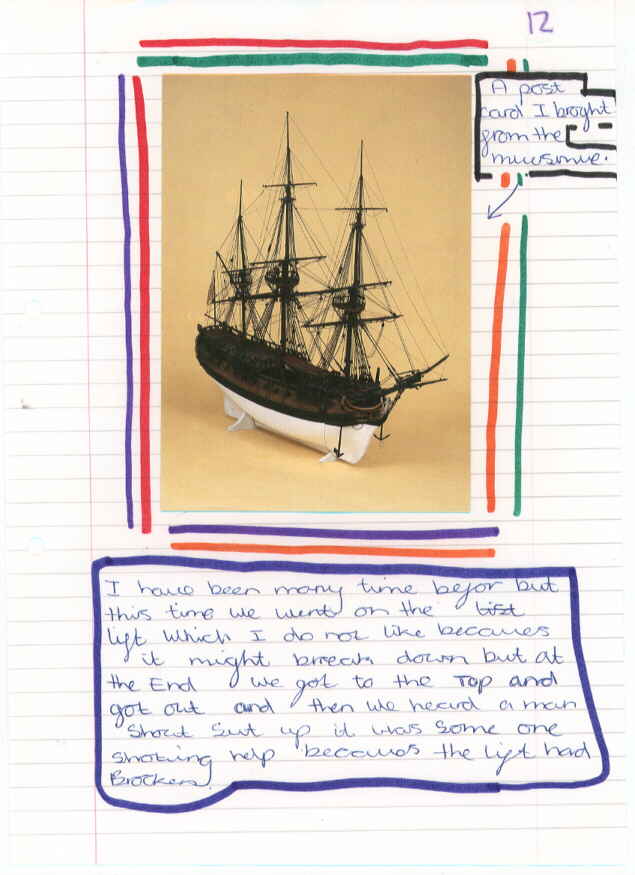 12
A post
card I broght
from the
muusinue.
I have been many time befor but
this time we went on the list
lift which I do not like becaues
it might breeak down but at
the End we got to the Top and
got out and then we heard a man
Shout Sut up it was Some one
shoting help becaues the lift had
Brocken.